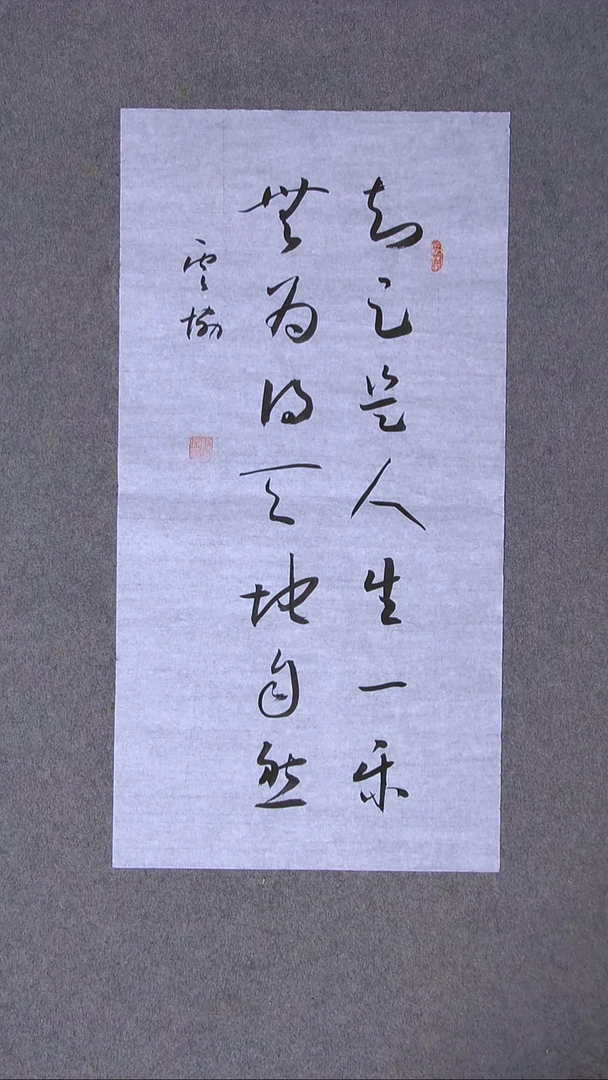 知足是人生一乐
無为得天地自然
雲榆